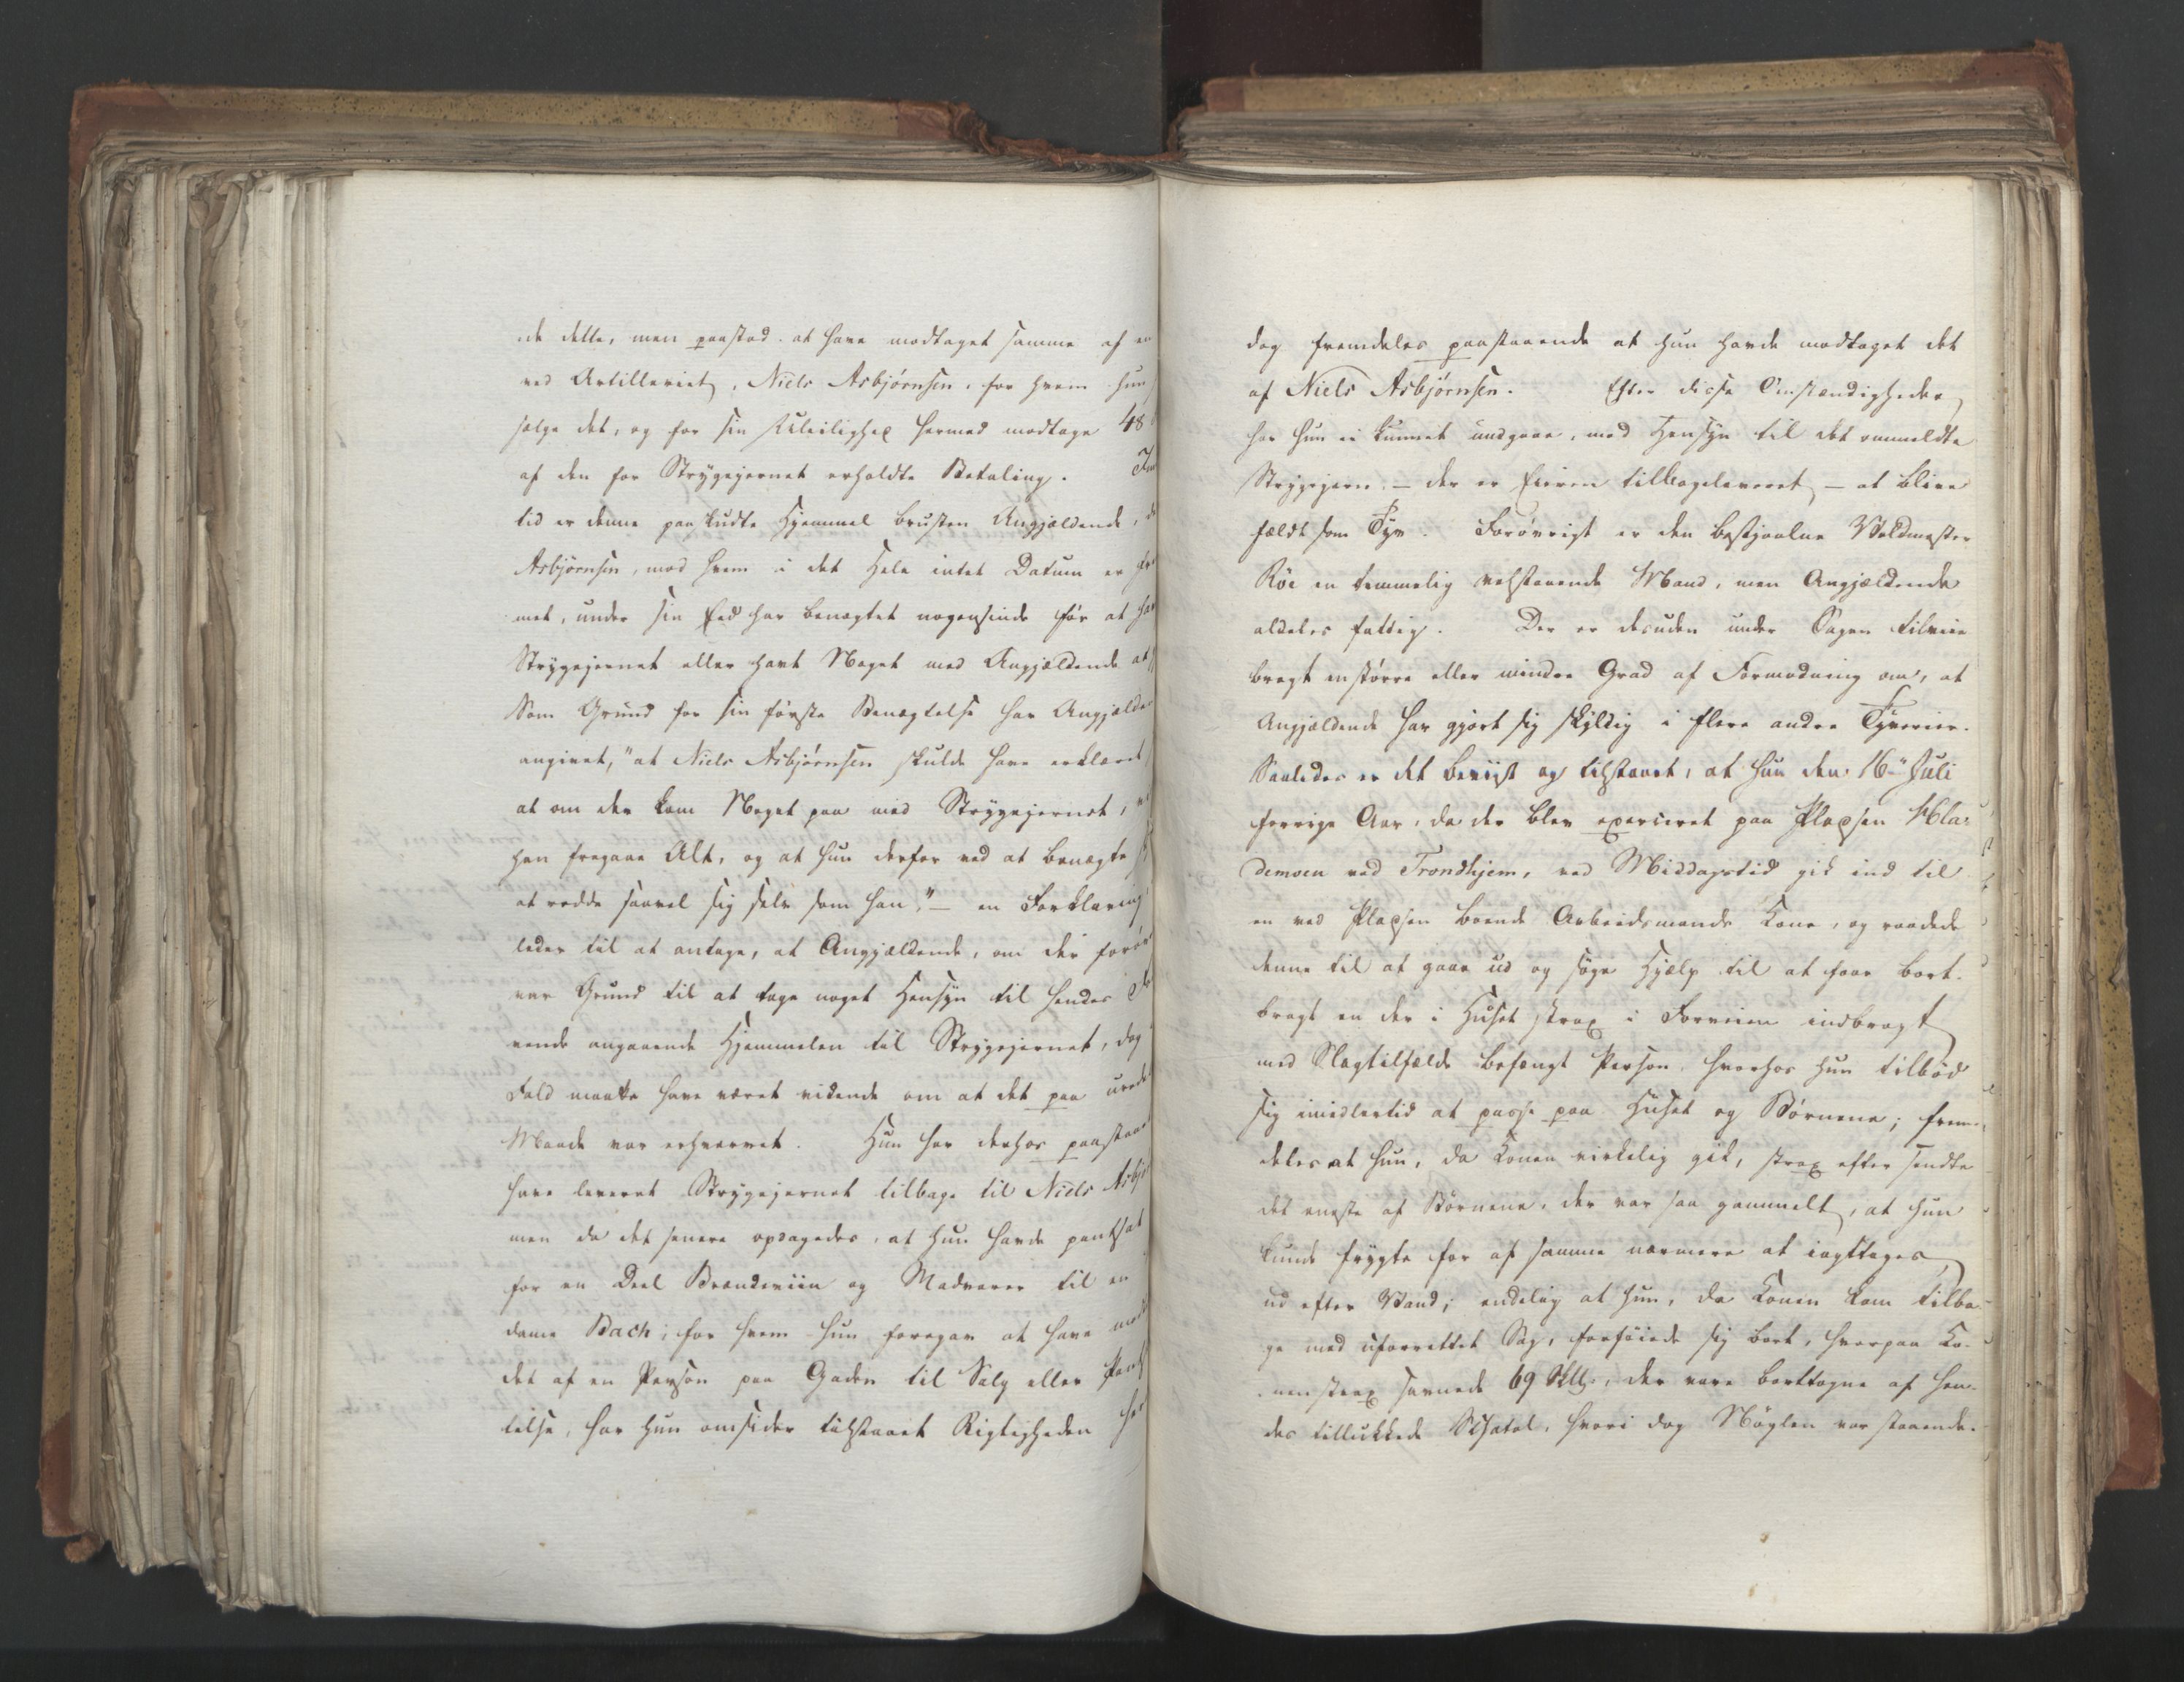 de dette, men paastod at have modtaget samme af en
ved Artilleriet, Niels Asbjørnsen, for hvem hun
sælge det, og for sin Uleilighed hermed modtage 48
af den for Strygejernet erholdte Betaling.
tid er denne paaskudte Hjemmel brusten Angjældende,
Asbjørnsen, mod hvem i det Hele intet Datum er
met, under sin Eed har benægtet nogensinde før at
Strygejernet eller havt Noget med Angjældende at
Som Grund for sin første Benægtelse har Angjælde
angivet, "at Niels Asbjørnsen skulde have erklæret
at om der kom Noget paa med Strygejernet,
han fragaae Alt, og at hun derfor ved at benægte
at redde saavel sig selv som ham," – en Forklaring
leder til at antage, at Angjældende, om der forøv
var Grund til at tage noget Hensyn til hendes
vende angaaende Hjemmelen til Strygejernet, dog
Fald maatte have været vidende om at det paa urede
Maade var erhvervet. Hun har derhos paastaaet
have leveret Strygejernet tilbage til Niels Asbj
men da det senere opdagedes, at hun havde pantsat
for en Deel Brændeviin og Madvarer til en
dame Bach, for hvem hun foregav at have
det af en Person paa Gaden til Salg eller Pant
telse, har hun omsider tilstaaet Rigtigheden
dog fremdeles paastaaende at hun havde modtaget det
af Niels Asbjørnsen. Efter disse Omstændigheder
har hun ei kunnet undgaae, med Hensyn til det ommeldte
Strygejern – der er Eieren tilbageleveret – at blive
fældt som Tyv. Forøvrigt er den bestjaalne Voldmester
Röe en temmelig velstaaende Mand, men Angjældende
aldeles fattig. Der er desuden under Sagen tilveie
bragt en større eller mindre Grad af Formodning om, at
Angjældende har gjort sig skyldig i flere andre Tyverier.
Saaledes er det beviist og tilstaaet, at hun den 16de Juli
forrige Aar, da der blev exerceret paa Pladsen
demoen ved Trondhjem, ved Middagstid gik ind til
en ved Pladsen boende Arbeidsmands Kone, og raadede
denne til at gaae ud og søge Hjælp til at faae bort-
bragt en der i Huset strax i Forveien indbragt
med Slagtilfælde befængt Person, hvorhos hun tilbød
sig imidlertid at passe paa Huset og Børnene; frem-
deles at hun, da Konen virkelig gik, strax efter sendte
det eneste af Børnene, der var saa gammelt, at hun
kunde frygte for af samme nærmere at iagttages
ud efter Vand; endelig at hun, da Konen kom tilba-
ge med uforrettet Sag, forføiede sig bort, hvorpaa Ko-
nen strax savnede 69 Skllg., der vare borttagne af hen-
des tillukkede Schatol, hvori dog Nøglen var staaende.